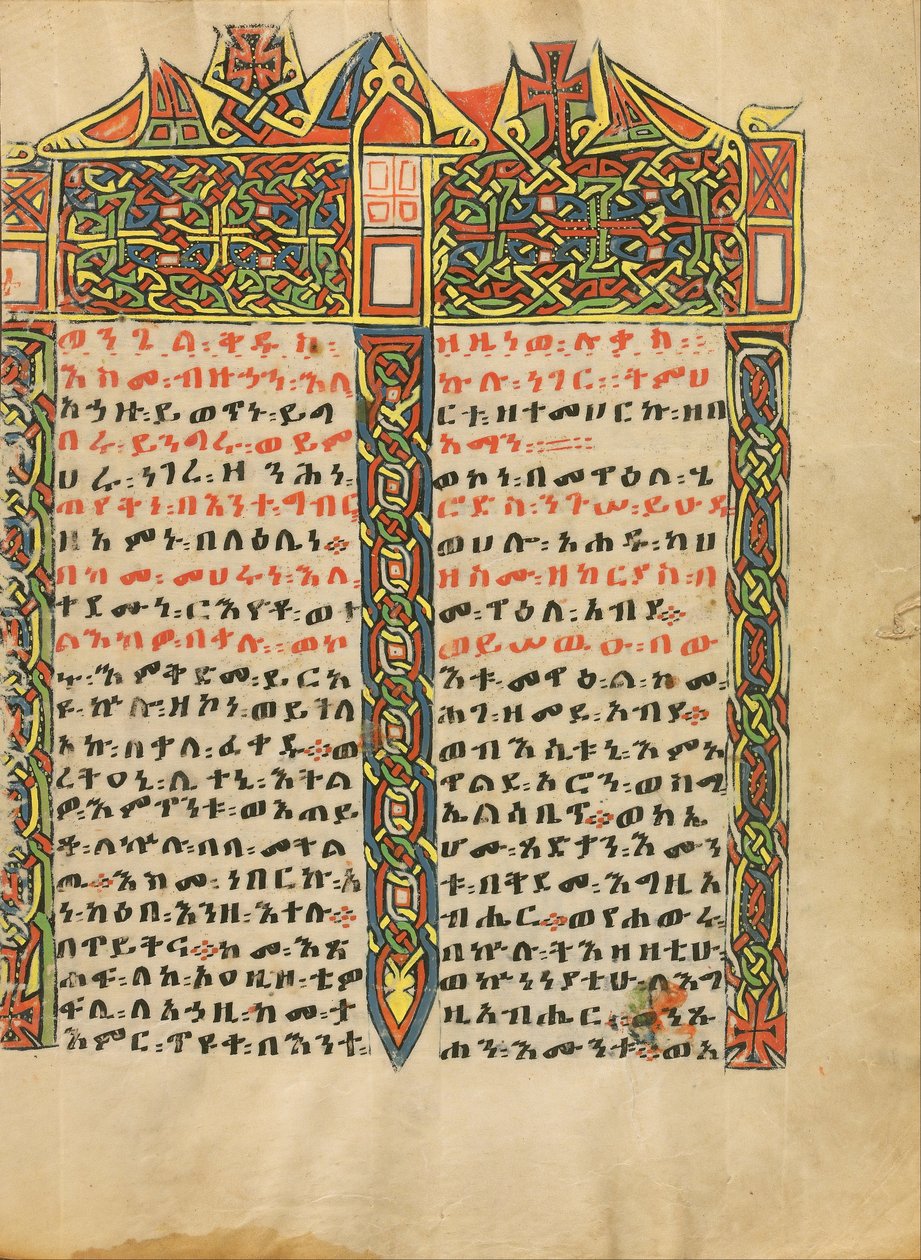 ወንጌል፡ቅዱስ፡
እስመ፡ብዙኃን፡እለ
አኃዙ፡ይወጥኑ፡ይግ
በሩ፡ይንግሩ፡ወይም
ሀሩ፡ነገረ፡ዘንሕነ፡
ጠየቅነ፡በእንተ፡ግብር
ዘአምኑ፡በላዕሌነ፨
በከመ፡መሀሩነ፡እለ፡
ተደሙነ፡ርእዮቶ፡ወተ
ልእክዎ፡በቃሉ፡፡ወኮ
ኑ፡እምቅድመ፡ይርአ
ዩ፡ኵሎ፡ዘኮነ፡ወይተለ
አኩ፡በቃለ፡ፈቃዱ፨ወ
ረትዐኒ፡ሊተኒ፡እትል
ዎ፡እምጥንቱ፡ወእጠይ
ቆ፡ለኵሉ፡በበ፡መትል
ው፨እስመ፡ነበርኩ፡አ
ነ፡ክዕበ፡እንዘ፡እተሉ፨
በጥይቅና፨ከመ፡እጽ
ሐፍ፡ለከ፡አዐዚዘ፡ቴዎ
ፍሊ፡ለአኃዚ፡ከመ፡ታ
እምር፡ጥዩቀ፡በእንተ፡
ዘዜነወ፡ሉቃስ፡፡
ኵሉ፡ነገር፡፡ትምህ
ርቱ፡ዘተመሀርኩ፡ዘበ
አማን፡፡
ወኮነ፡በመዋዕለ፡ሄ
ሮድስ፡ንጉሠ፡ይሁዳ
ወሀሎ፡አሐዱ፡ካህ
ዘስሙ፡ዘካርያስ፡በ
መዋዕለ፡አብያ፨
ወይሠውዑ፡በው
እቱ፡መዋዕል፡ከመ፡
ሕገ፡ዘመደ፡አብያ፨
ወብእሲቱኒ፡እምአ
ዋልደ፡አሮን፡ወስማ
ኤልሳቤጥ፨ወክኤ
ሆሙ፡ጻድቃን፡እሙን
ቱ፡በቅደመ፡እግዚአ
ብሔር፨ወየሐውሩ
በኵሉ፡ትእዘዚቲሁ፡
ወኵነኔያቲሁ፡ለእግ
ዚአብሔር፡ንጹ
ሐን፡እሙንቱ፨ወአ